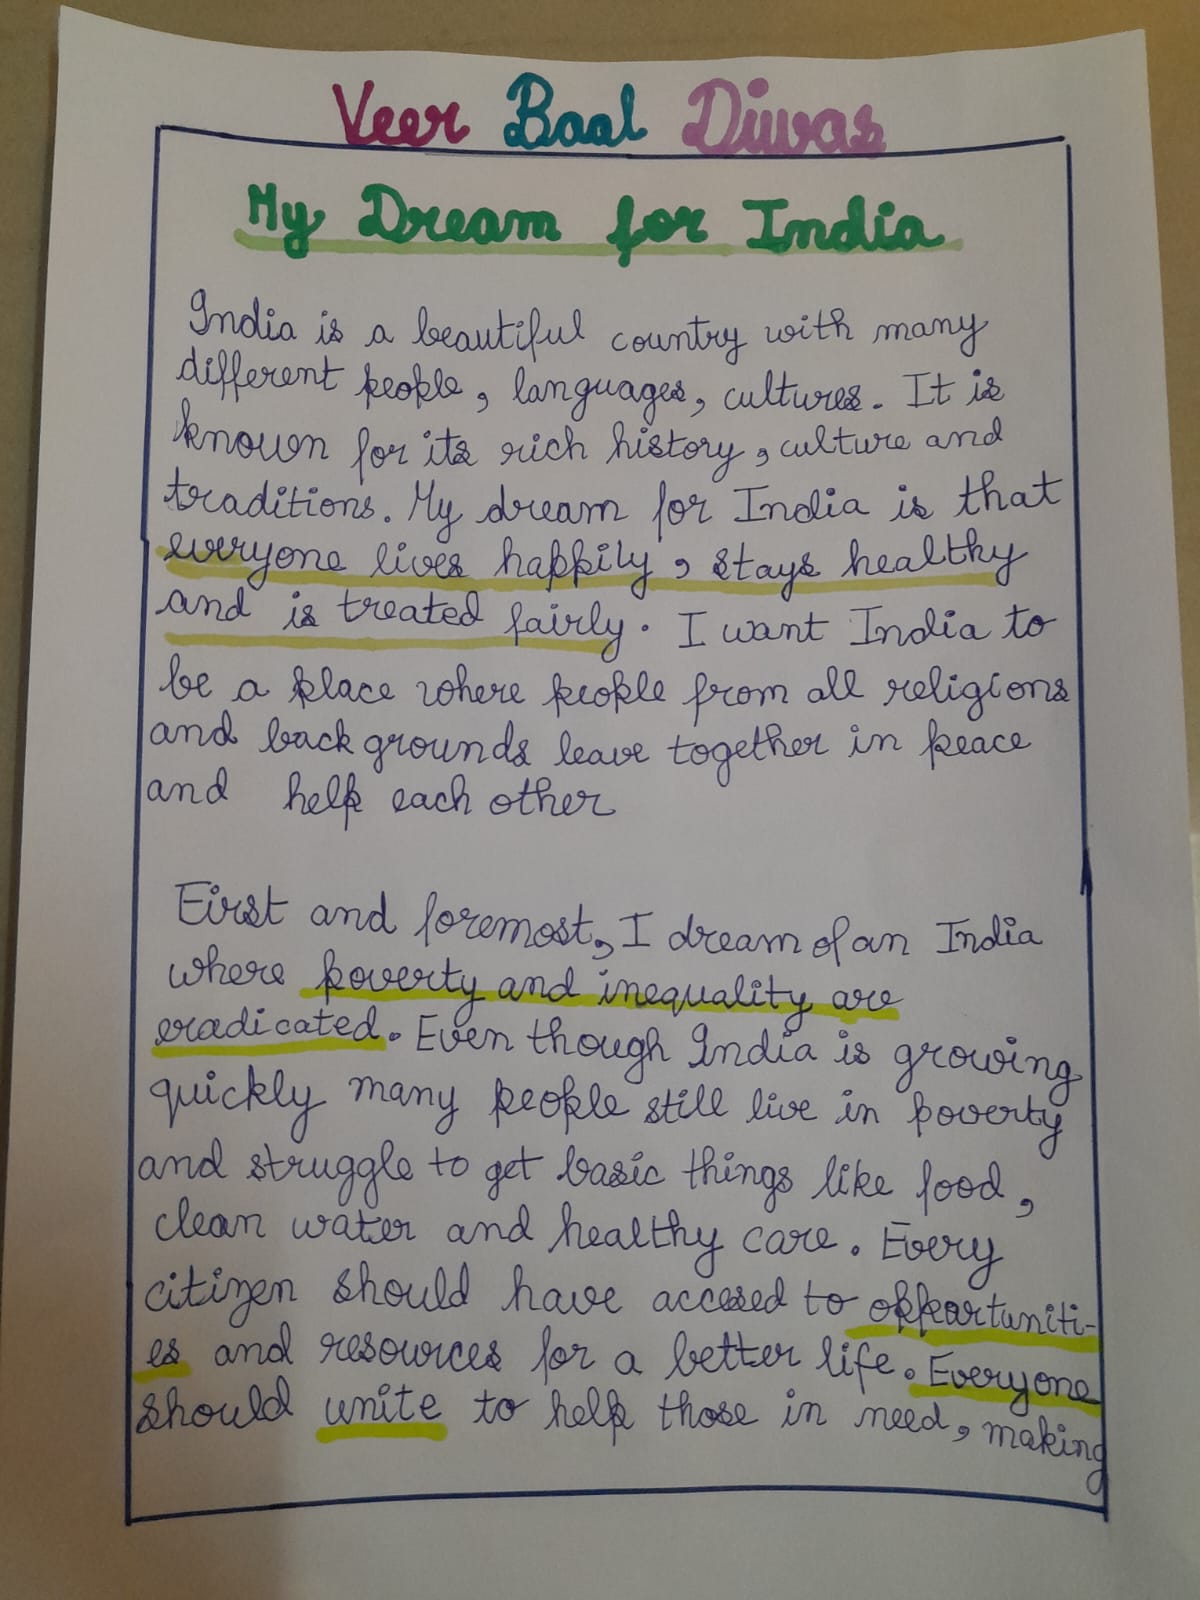 Veer Baal Diwas
My Dream for India
India is a beautiful country with many
different people, languages, cultures. It is
known for its rich history, culture and
traditions. My dream for India is that
everyone lives happily, stays healthy
and is treated fairly. I want India to
be a place where people from all religions
and back grounds leave together in peace
and help each other
First and foremost, I dream of an India
where poverty and inequality are
eradicated. Even though India is growing
quickly many people still live in poverty
and struggle to get basic things like food,
clean water and healthy care. Every
citizen should have accesed to opportuniti-
es and resources for a better life. Everyone
should unite to help those in need, making